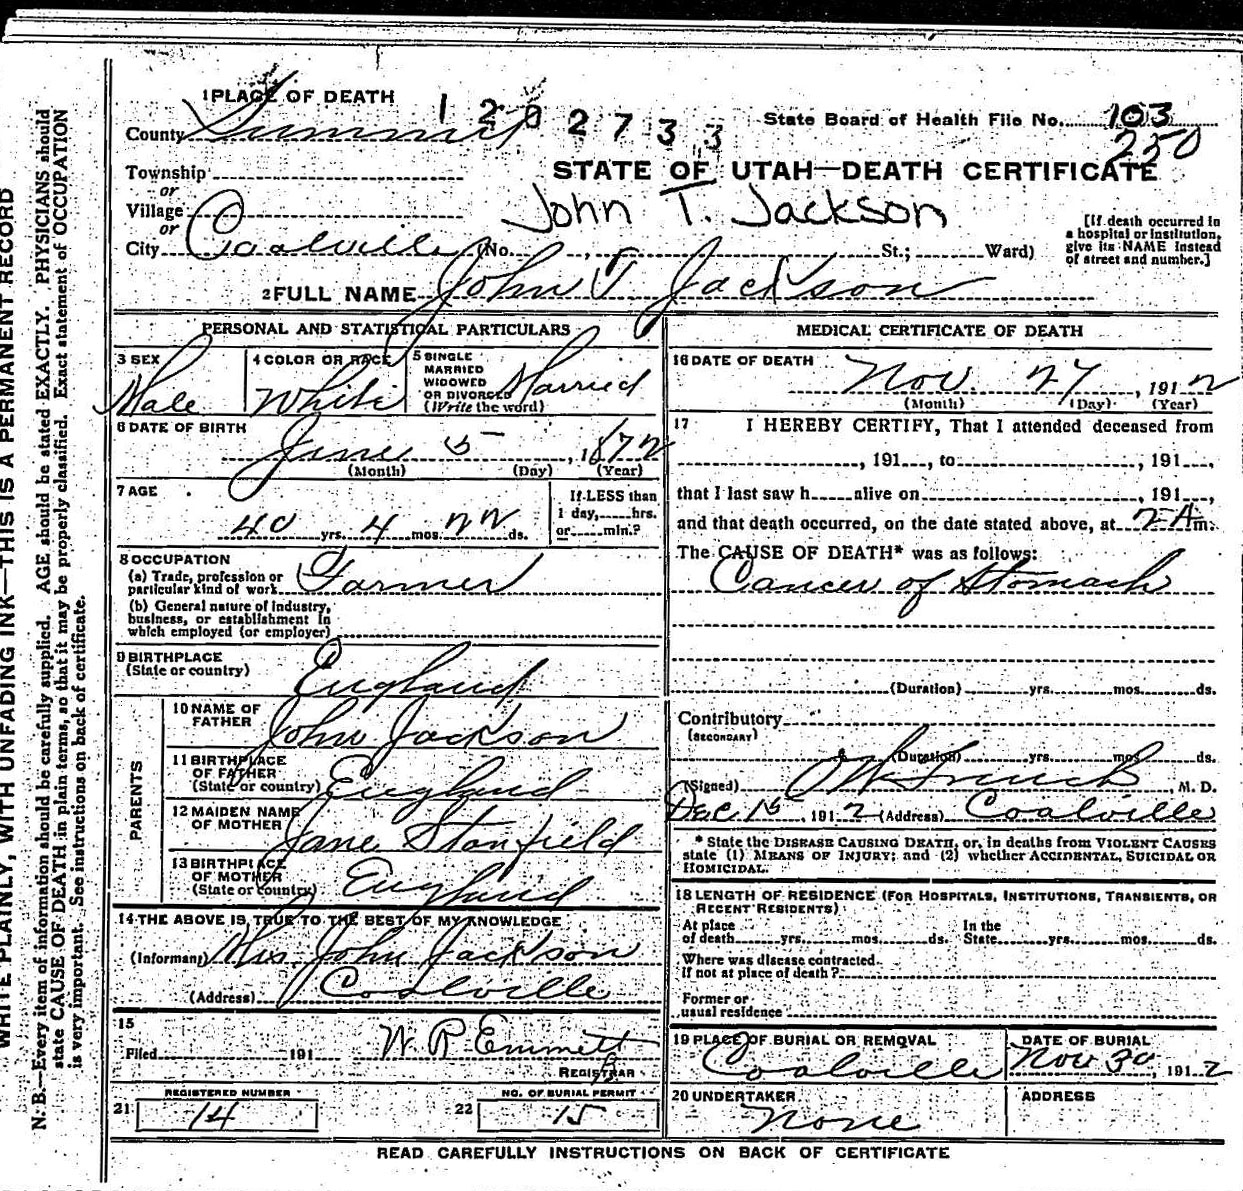 1 PLACE OF DEATH
1202733
State Board of Health File No. 103
250
County Summit
STATE OF UTAH—DEATH CERTIFICATE
Township
or
Village
or
John T. Jackson
City Coalville (No. , St.; Ward)
[If death occurred in
a hospital or institution,
give its NAME instead
of street and number.]
2 FULL NAME John T Jackson
PERSONAL AND STATISTICAL PARTICULARS
3 SEX
Male
4 COLOR OR RACE
White
5 SINGLE
MARRIED
WIDOWED
OR DIVORCED
(Write the word)
Married
6 DATE OF BIRTH
June 5, 1872
(Month) (Day) (Year)
7 AGE
40 yrs. 4 mos. 22 ds.
If LESS than
1 day, hrs.
or min.?
8 OCCUPATION
(a) Trade, profession or
particular kind of work Farmer
(b) General nature of industry,
business, or establishment in
which employed (or employer)
9 BIRTHPLACE
(State or country)
England
PARENTS
10 NAME OF
FATHER
John Jackson
11 BIRTHPLACE
OF FATHER
(State or country) England
12 MAIDEN NAME
OF MOTHER
Jane Stanfield
13 BIRTHPLACE
OF MOTHER
(State or country) England
14 THE ABOVE IS TRUE TO THE BEST OF MY KNOWLEDGE
(Informant) Mrs John Jackson
(Address) Coalville
15
Filed 191 W. P. Emmett
REGISTRAR
REGISTERED NUMBER
21 14
NO. OF BURIAL PERMIT
22 15
MEDICAL CERTIFICATE OF DEATH
16 DATE OF DEATH
Nov. 27, 1912
(Month) (Day) (Year)
17 I HEREBY CERTIFY, That I attended deceased from
, 191 , to , 191 ,
that I last saw h alive on , 191 ,
and that death occurred, on the date stated above, at 2 A m.
The CAUSE OF DEATH* was as follows:
Cancer of Stomach
(Duration) yrs. mos. ds.
Contributory
(SECONDARY)
(Duration) yrs. mos. ds.
(Signed) , M. D.
Dec 15, 1912 (Address) Coalville
* State the DISEASE CAUSING DEATH, or, in deaths from VIOLENT CAUSES
state (1) MEANS OF INJURY; and (2) whether ACCIDENTAL, SUICIDAL OR
HOMICIDAL.
18 LENGTH OF RESIDENCE (FOR HOSPITALS, INSTITUTIONS, TRANSIENTS, OR
RECENT RESIDENTS)
At place
of death yrs. mos. ds.
In the
State yrs. mos. ds.
Where was disease contracted
if not at place of death?
Former or
usual residence
19 PLACE OF BURIAL OR REMOVAL
Coalville
DATE OF BURIAL
Nov 30, 1912
20 UNDERTAKER
None
ADDRESS
READ CAREFULLY INSTRUCTIONS ON BACK OF CERTIFICATE
WRITE PLAINLY, WITH UNFADING INK—THIS IS A PERMANENT RECORD
N. B.—Every item of information should be carefully supplied. AGE should be stated EXACTLY. PHYSICIANS should
state CAUSE OF DEATH in plain terms, so that it may be properly classified. Exact statement of OCCUPATION
is very important. See instructions on back of certificate.